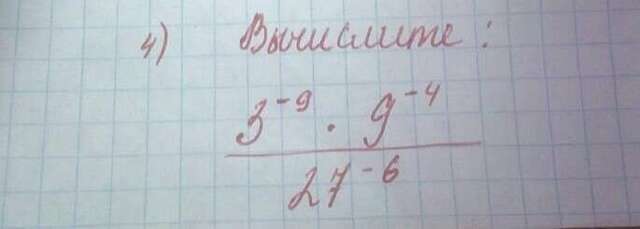 4) Вычислите:
3⁻⁹ · 9⁻⁴
27⁻⁶